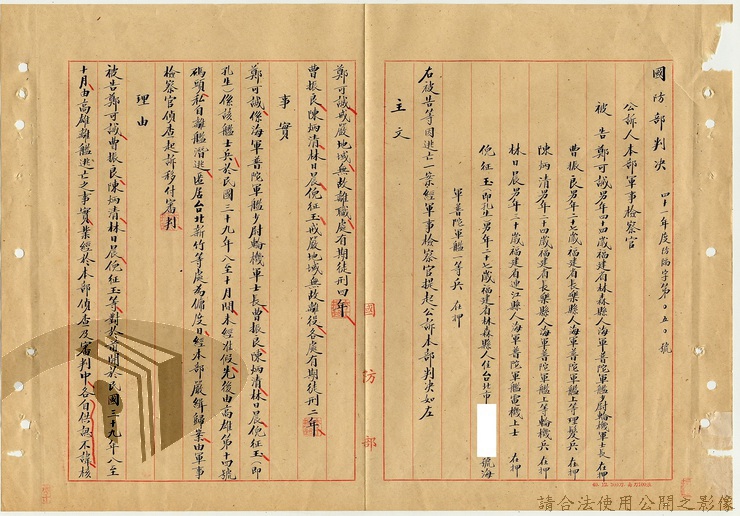 國防部判决　四十一年度防錦字第〇五〇號
公訴人本部軍事檢察官
被告鄭可誠男年四四歲福建省林森縣人海軍普陀軍艦少尉輪機軍士長在押
曹振良男年三七歲福建省長樂縣人海軍普陀軍艦上等理髮兵在押
陳炳清男年二十四歲福建省長樂縣人海軍普陀軍艦上等輪機兵在押
林日晨男年二十歲福建省連江縣人海軍普陀軍艦電機上士在押
倪征玉即孔生男年二十七歲福建省林森縣人住台北市　號海
軍普陀軍艦一等兵　在押
右被告等因逃亡一案經軍事檢察官提起公訴本部判决如左
主文
鄭可誠戒嚴地域無故離職處有期徒刑四年
曹振良陳炳清林日晨倪征玉戒嚴地域無故離役各處有期徒刑二年
事實
鄭可誠係海軍普陀軍艦少尉輪機軍士長曹振良陳炳清林日晨倪征玉（即
孔生）係該艦士兵於民國三十九年八至十月間未經准假先後由高雄第十四號
碼頭私自離艦潛逃匿居台北新竹等處為傭度日經本部嚴緝歸案由軍事
檢察官偵查起訴移付審判
理由
被告鄭可誠曹振良陳炳清林日晨倪征玉等對於前開於民國三十九年八至
十月由高雄離艦逃亡之事實業經於本部偵查及審判中各自供認不諱核
國防部
請合法使用公開之影像